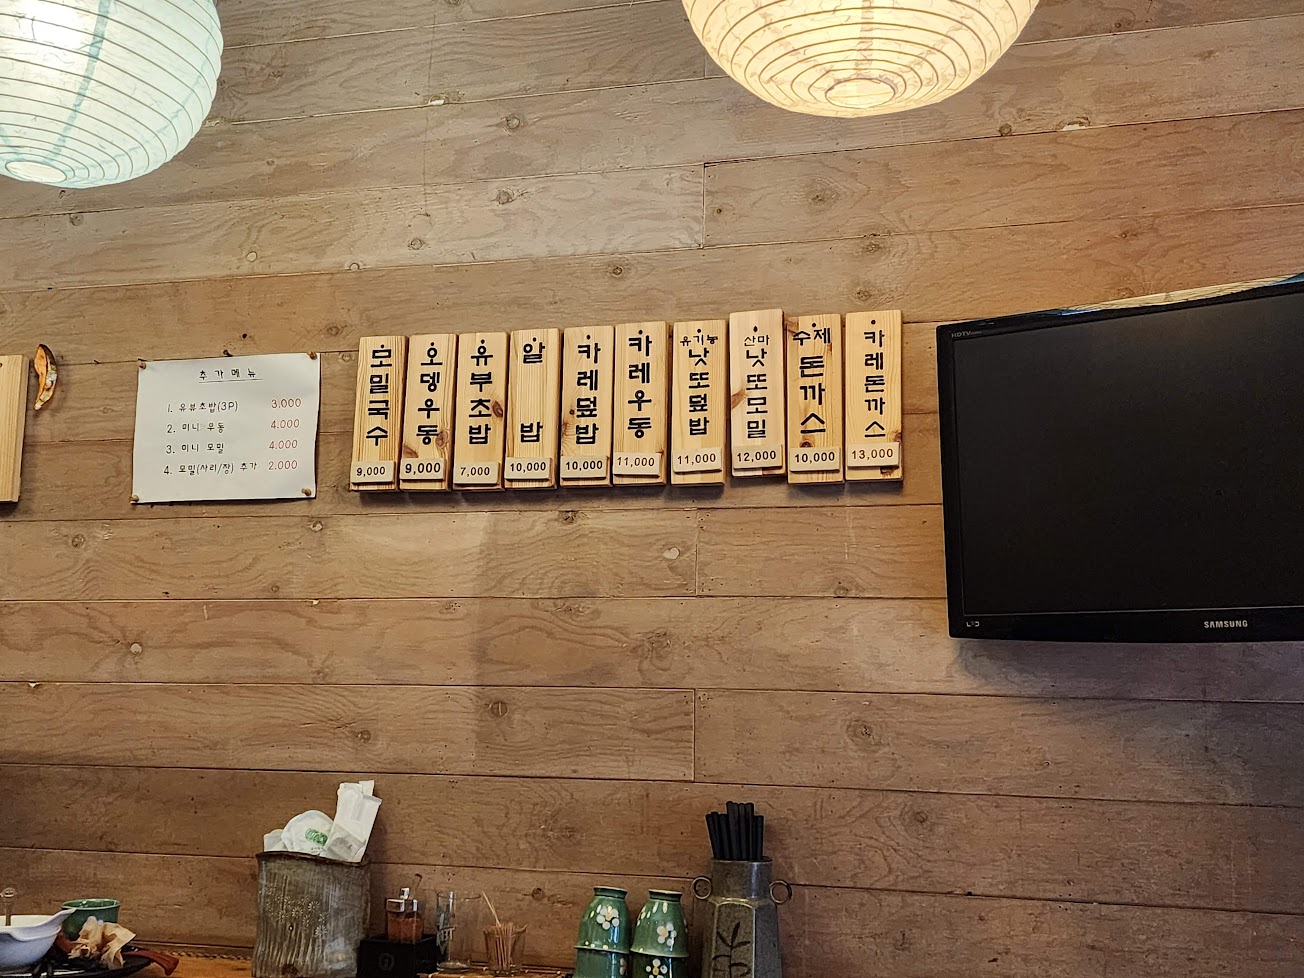 추가메뉴
1. 유뷰초밥(3P) 3,000
2. 미니 우동 4,000
3. 미니 모밀 4,000
4. 모밀(사리/장) 추가 2,000
모밀국수
9,000
오뎅우동
9,000
유부초밥
7,000
알밥
10,000
카레덮밥
10,000
카레우동
11,000
유기농
낫또덮밥
11,000
산마
낫또모밀
12,000
수제
돈까스
10,000
카레돈까스
13,000
HDTV
SAMSUNG